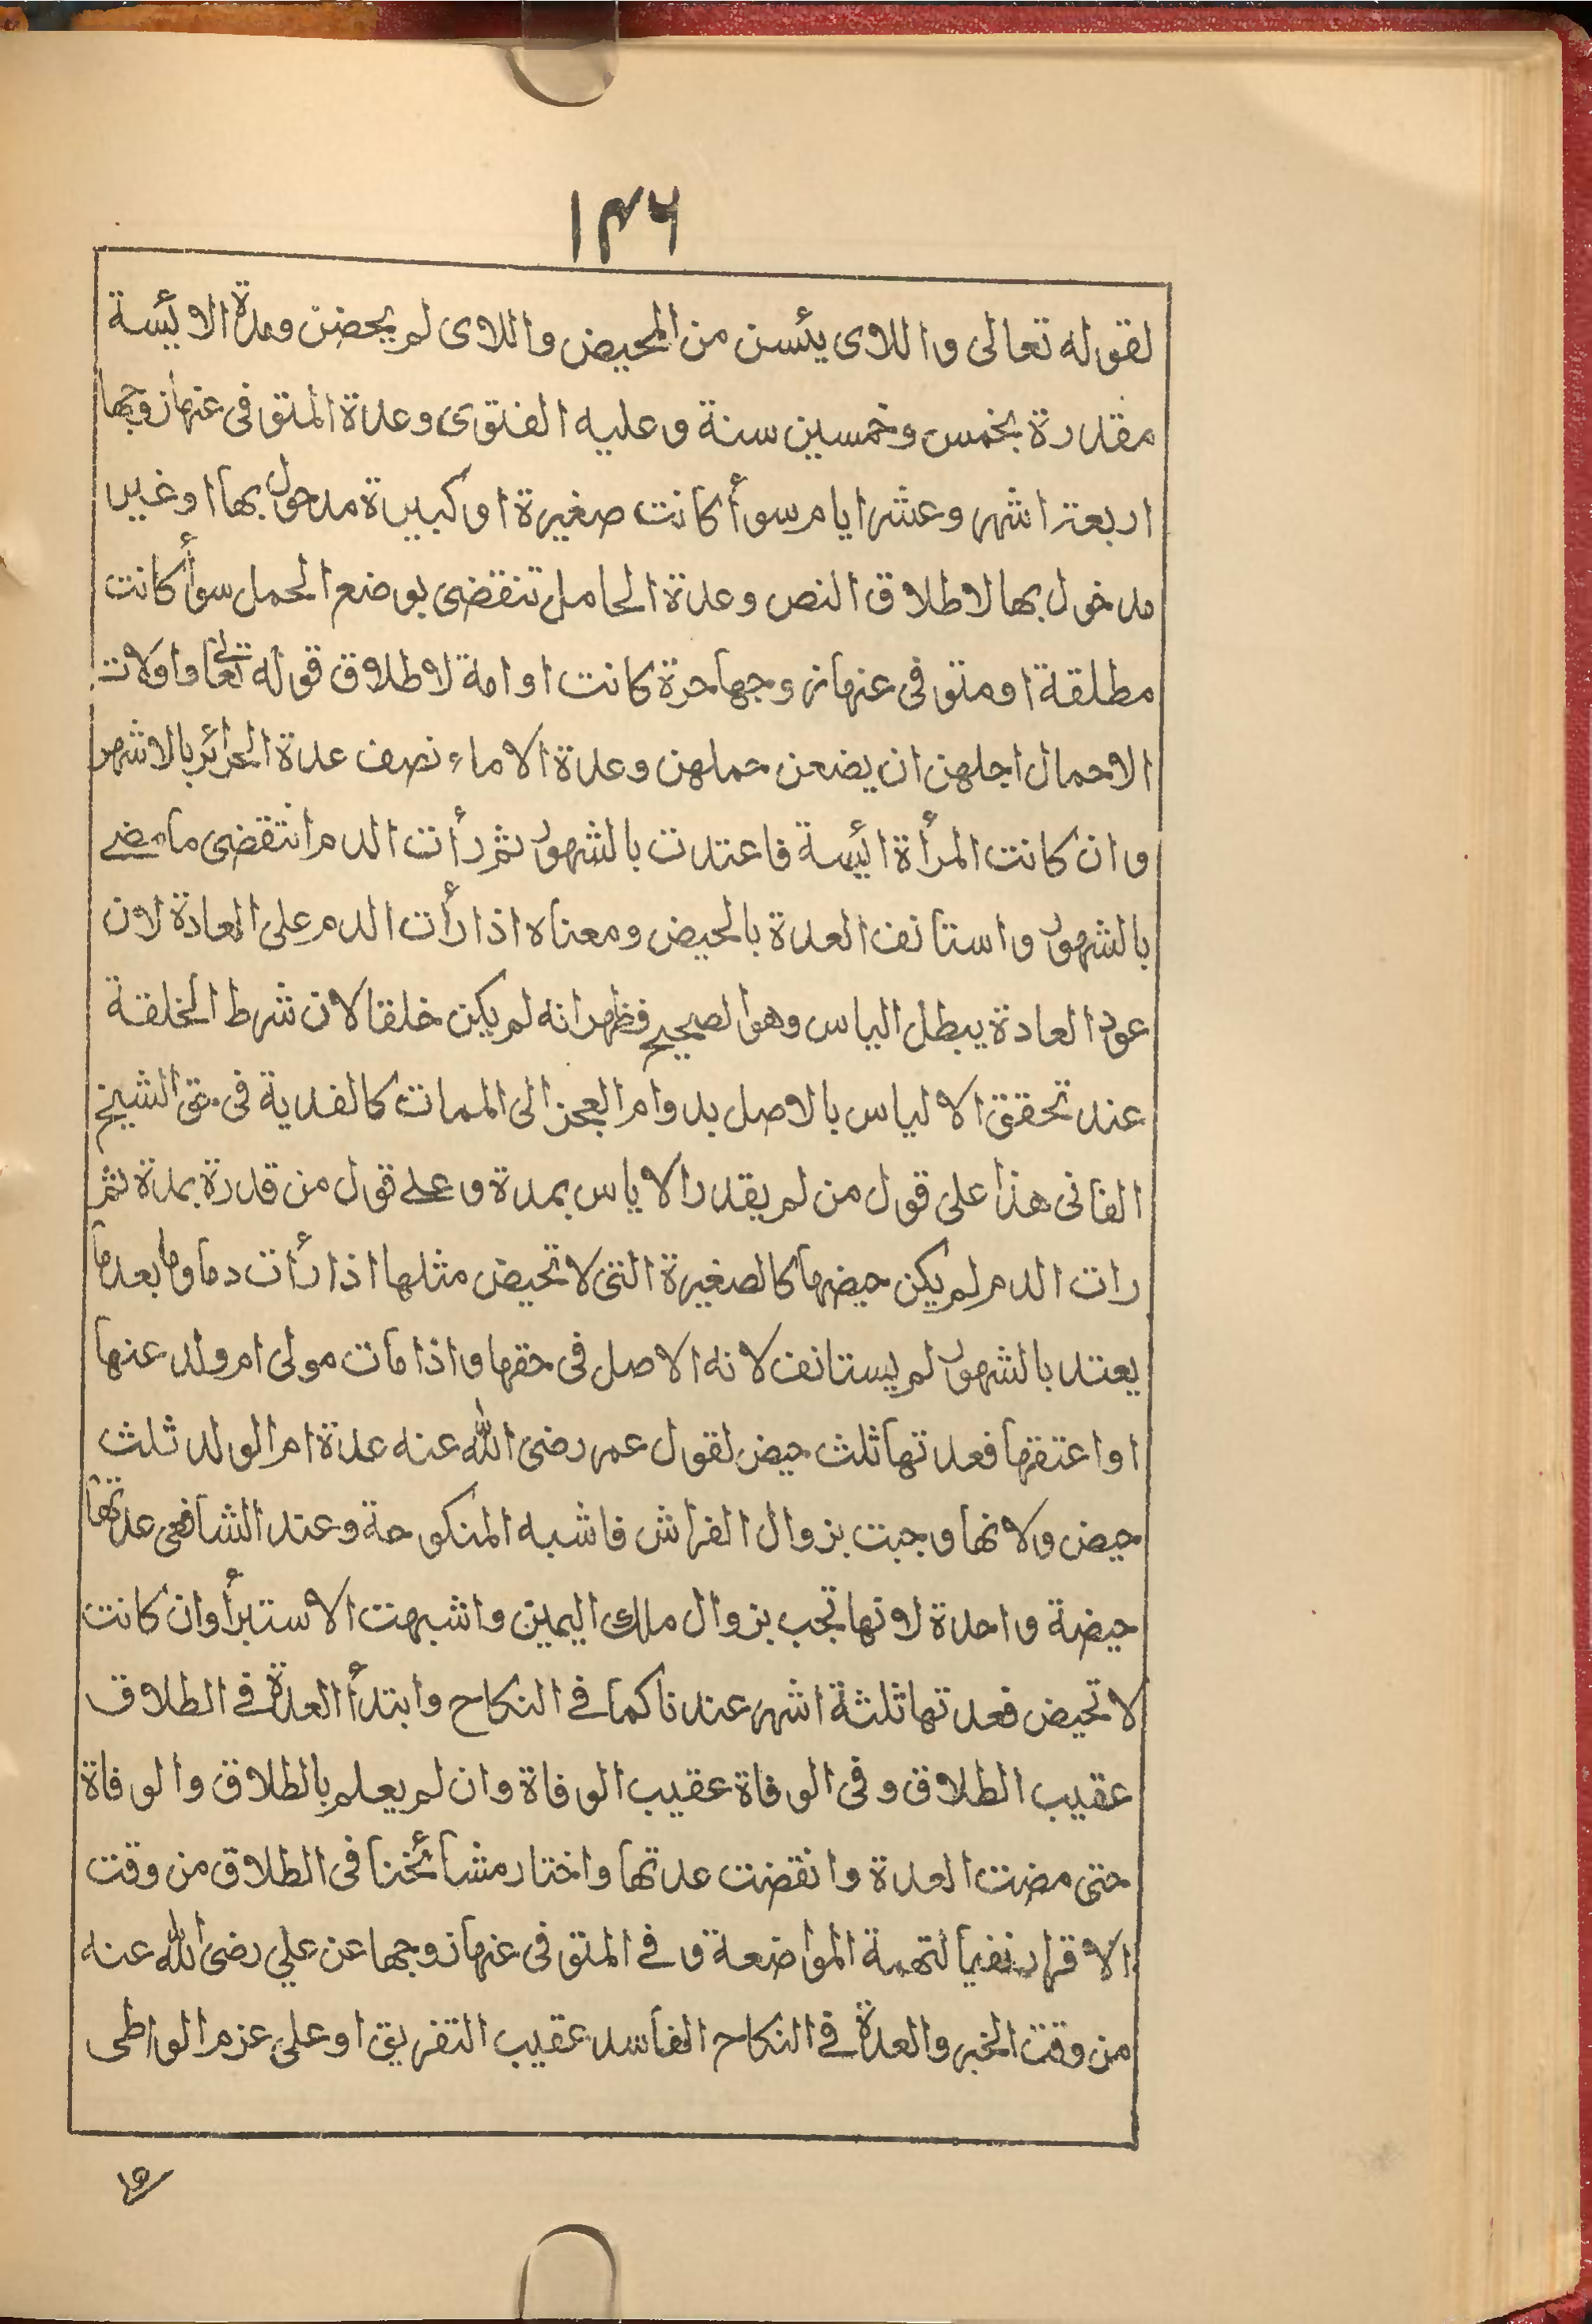 ۱۳۶
لقوله تعالى واللاى يئسن من المحيض واللاى لم يحضن ومدة الايئسة
مقدرة بخمس وخمسين سنة وعليه الفتوى وعدة المتوفى عنها زوجها
اربعة اشهر وعشر ايام سوأ كانت صغيرة او كبيرة مدحول بها او غير
مدخول بها لاطلاق النص وعدة الحامل تنقضى بوضع الحمل سوأ كانت
مطلقة او متوفى عنها زوجها حرة كانت او امة لاطلاق قوله تعالى واولات
الاحمال اجلهن ان يضعن حملهن وعدة الاماء نصف عدة الحرائر بالاشهر
وان كانت المرأة ائيسة فاعتدت بالشهور ثم رأت الدم انتقضى ما مضے
بالشهور واستانف العدة بالحيض ومعناه اذا رأت الدم على العادة لان
عود العادة يبطل الياس وهو الصحيح فظهر انه لم يكن خلقا لان شرط الخلقة
عند تحقق الالياس بالاصل بدوام العجز الى الممات كالفدية فى حق الشيخ
الفانى هذا على قول من لم يقدر الاياس بمدة وعلے قول من قدرة بمدة ثم
رات الدم لم يكن حيضها كالصغيرة التى لا تحيض مثلها اذا رأت دما وما بعدما
يعتد بالشهور لم يستانف لانه الاصل فى حقها واذا مات مولى ام ولد عنها
او اعتقها فعدتها ثلث حيض لقول عمر رضى الله عنه عدة ام الولد ثلث
حيض ولانها وجبت بزوال الفراش فاشبه المنكوحة وعند الشافعى عدتها
حيضة واحدة لانها تجب بزوال ملك اليمين واشبهت الاستبرأ وان كانت
لا تحيض فعدتها ثلثة اشهر عندنا كما فے النكاح وابتدأ العدة فے الطلاق
عقيب الطلاق وفى الوفاة عقيب الوفاة وان لم يعلم بالطلاق والوفاة
حتى مضت العدة وانقضت عدتها واختار مشائخنا فى الطلاق من وقت
الاقرار نفيا لتهمة المواضعة وفے المتوفى عنها زوجها عن علي رضى الله عنه
من وقت الخبر والعدة فے النكاح الفاسد عقيب التفريق او على عزم الواطى